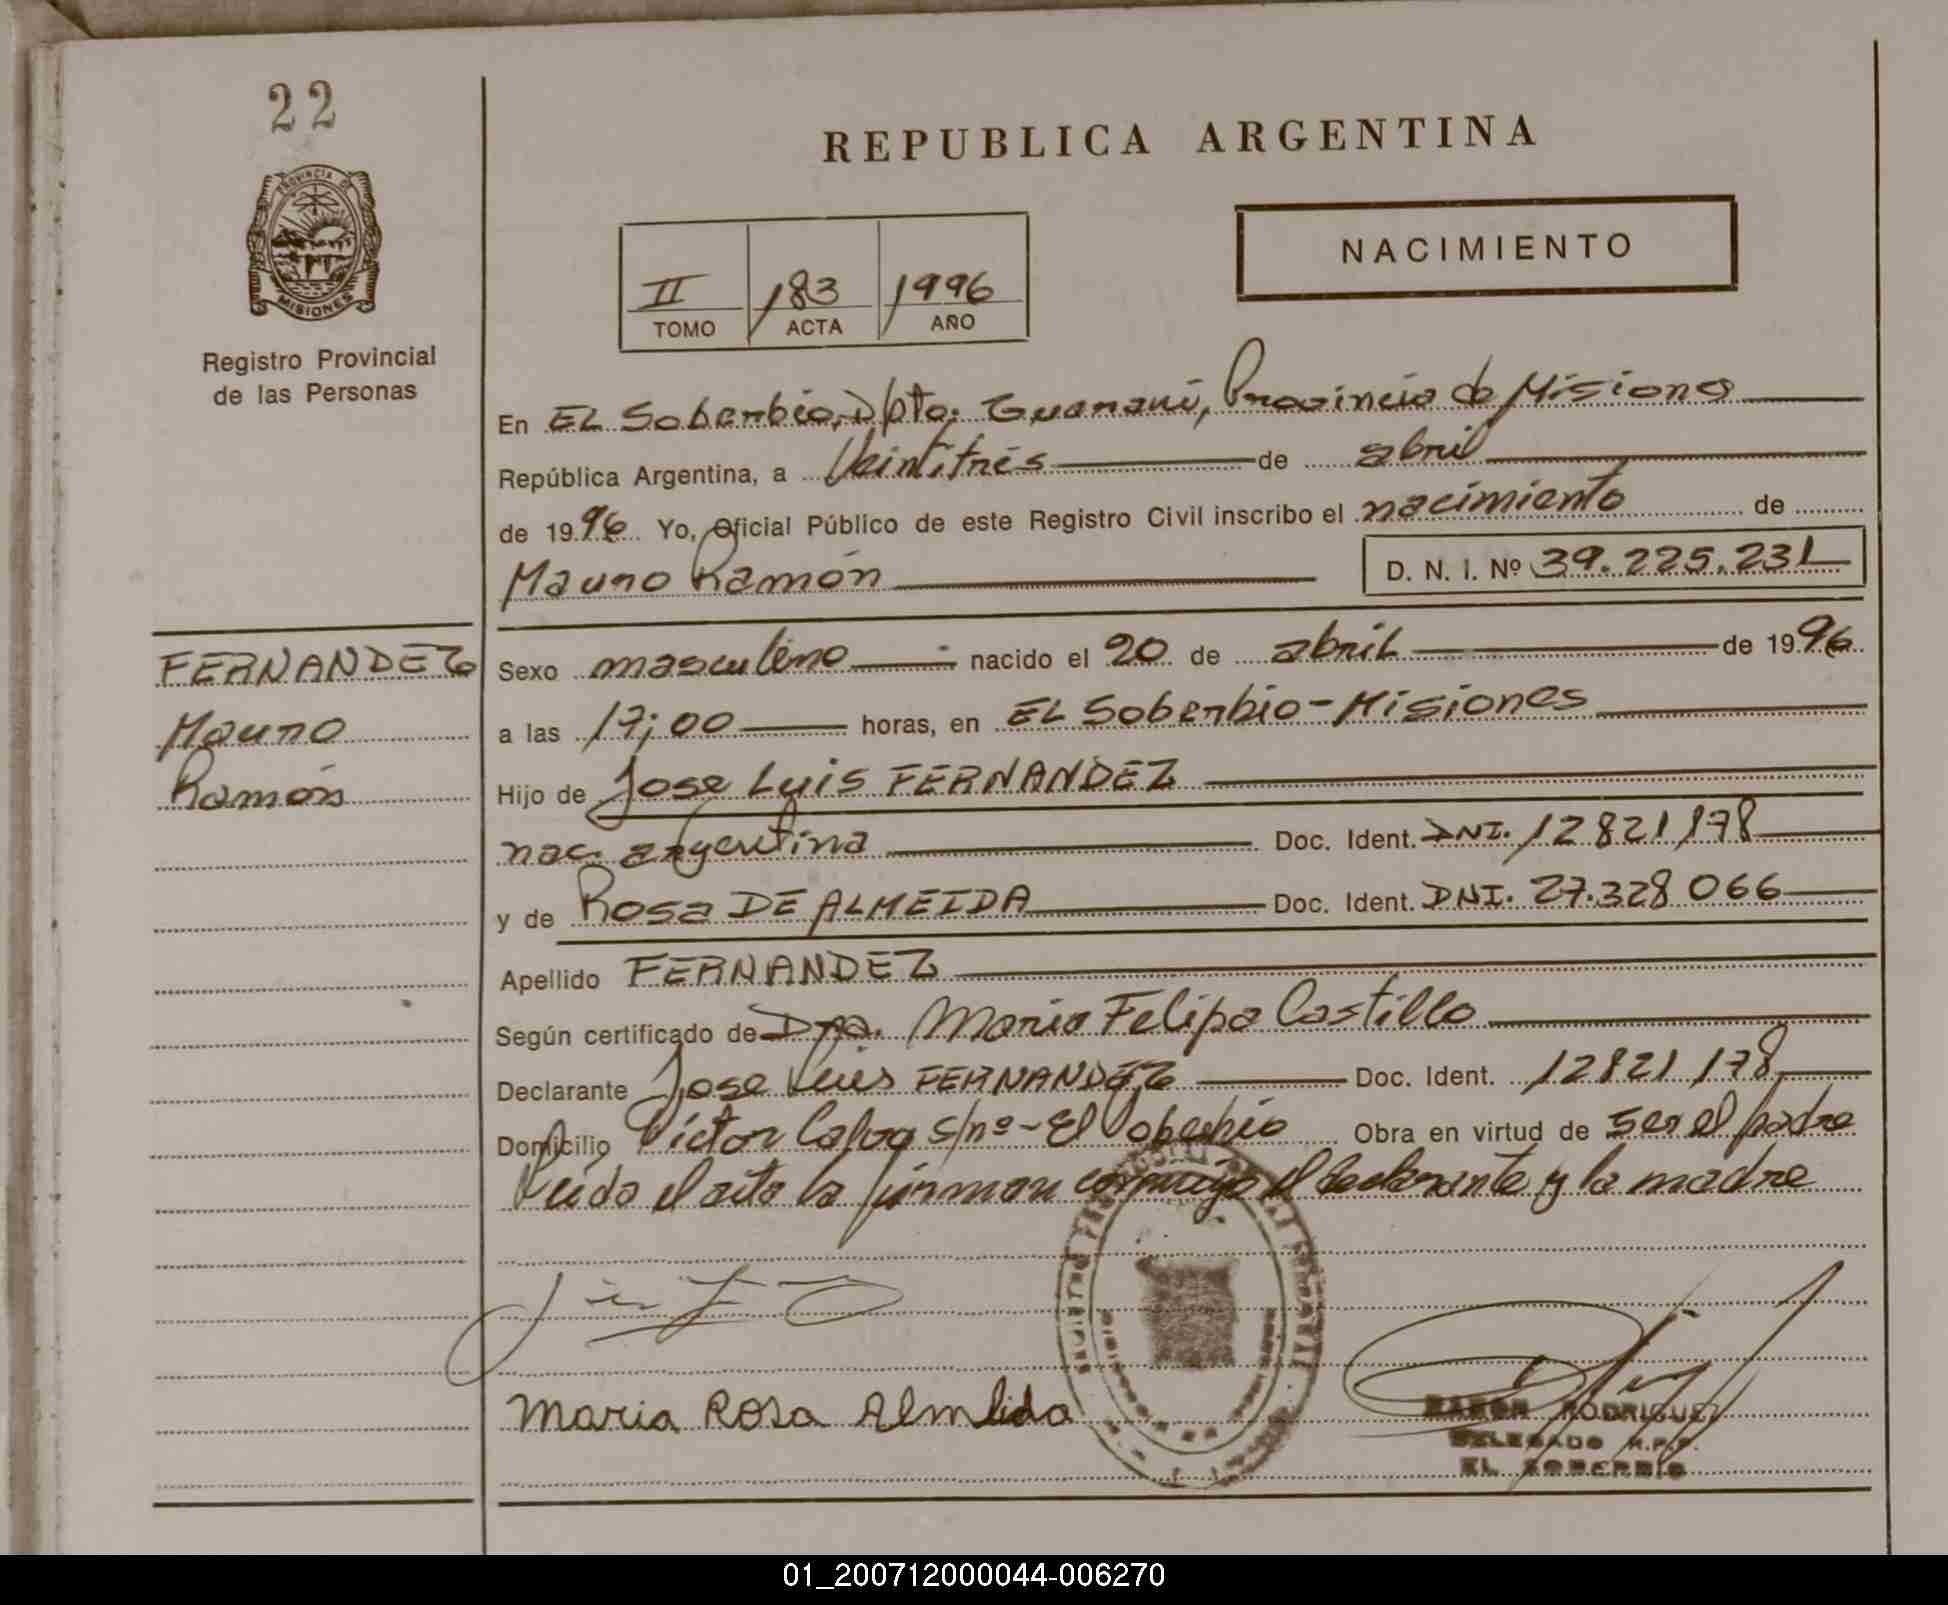 22
PROVINCIA DE
MISIONES
Registro Provincial
de las Personas
REPUBLICA ARGENTINA
NACIMIENTO
II 183 1996
TOMO ACTA AÑO
En EL Soberbio, Dpto. Guaraní, Provincia de Misiones
República Argentina, a Veintitrés de abril
de 1996 Yo, Oficial Público de este Registro Civil inscribo el nacimiento de
Mauro Ramón D. N. I. Nº 39.225.231
FERNANDEZ
Mauro
Ramón
Sexo masculino nacido el 20 de abril de 1996
a las 17;00 horas, en EL Soberbio-Misiones
Hijo de Jose Luis FERNANDEZ
nac. argentina Doc. Ident. DNI. 12821178
y de Rosa DE ALMEIDA Doc. Ident. DNI. 27.328066
Apellido FERNANDEZ
Según certificado de Dra. Maria Felipa Castillo
Declarante Jose Luis FERNANDEZ Doc. Ident. 12821178
Domicilio Victor s/nº-El Soberbio Obra en virtud de ser el padre
Leida el acta la firman conmigo el declarante y la madre
Maria Rosa Almeida
RAMON RODRIGUEZ
DELEGADO R.P.P.
EL SOBERBIO
01_200712000044-006270